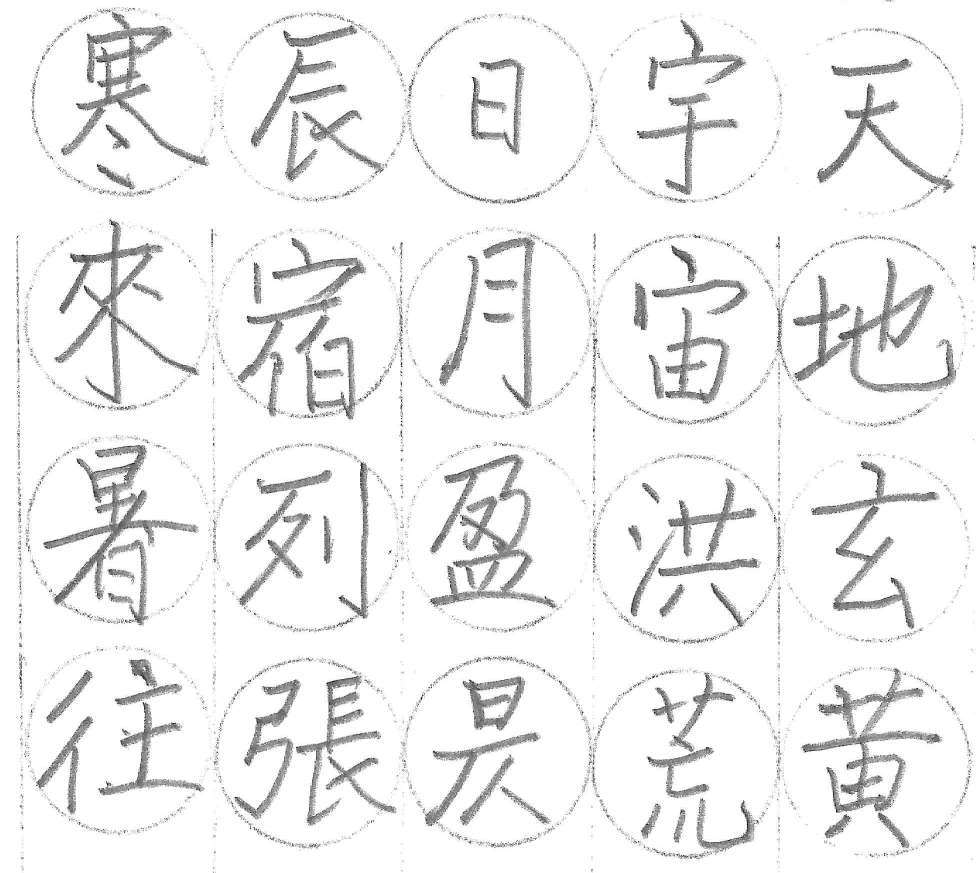 天地玄黄
宇宙洪荒
日月盈昃
辰宿列張
寒來暑往